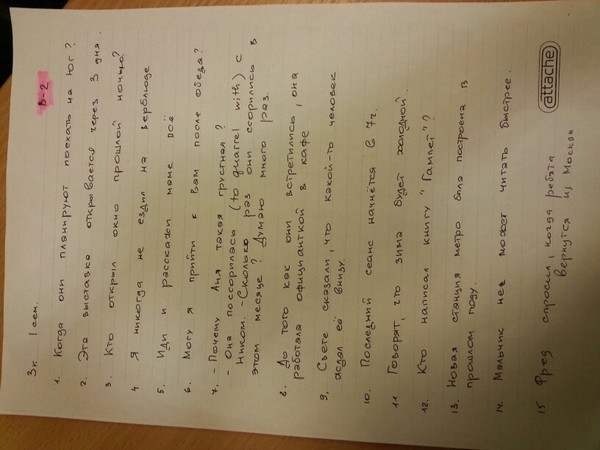 3к. 1 сем.
В-2
1. Когда они планируют поехать на Юг?
2. Эта выставка открывается через 3 дня.
3. Кто открыл окно прошлой ночью?
4 Я никогда не ездил на верблюде
5. Иди и расскажи маме всё
6. Могу я прийти к вам после обеда?
7. - Почему Аня такая грустная?
- Она поссорилась (to quarrel with) с
Ником. - Сколько раз они ссорились в
этом месяце? Думаю много раз.
8. До того как они встретились, она
работала официанткой в кафе
9. Свете сказали, что какой-то человек
ждал её внизу.
10. Последний сеанс начнётся в 7ч.
11 Говорят, что зима будет холодной.
12. Кто написал книгу "Гамлет"?
13. Новая станция метро была построена в
прошлом году.
14. Мальчик не может читать быстрее.
15 Фред спросил, когда ребята
вернутся из Москвы
attache